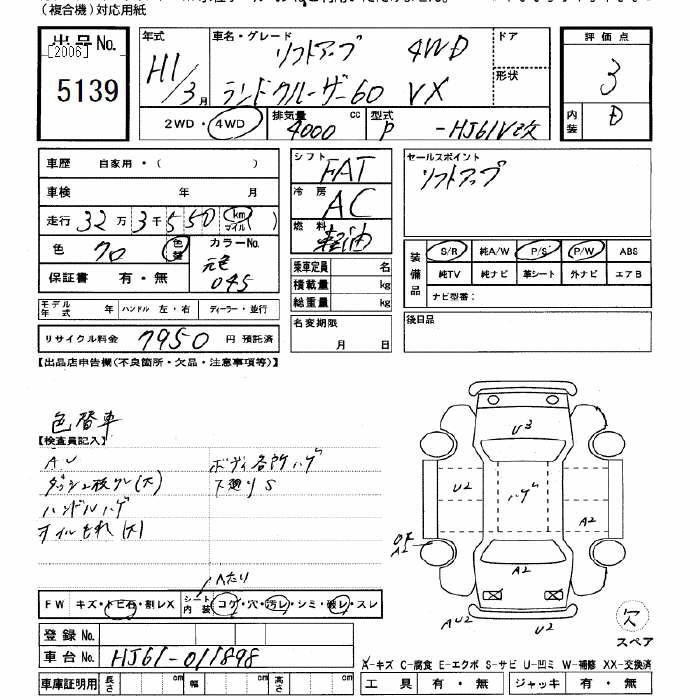 (複合機)対応用紙
出品No. [2006] 5139
年式 H1/3月
車名・グレード リフトアップ 4WD
ランドクルーザー60 VX
ドア
形状
評価点 3
内装 D
2WD・4WD
排気量 4000 cc
型式 P -HJ61V改
車歴 自家用・( )
車検 年 月
走行 32万3千550 (km マイル)
色 クロ 色替
カラーNo. 元色 045
保証書 有・無
モデル年式 年 ハンドル 左・右 ディーラー・並行
リサイクル料金 7950 円 預託済
シフト FAT
冷房 AC
燃料 軽油
乗車定員 名
積載量 kg
総重量 kg
名変期限 月 日
セールスポイント
リフトアップ
装備品 S/R 純A/W P/S P/W ABS
純TV 純ナビ 革シート 外ナビ エアB
ナビ型番:
後日品
【出品店申告欄(不良箇所・欠品・注意事項等)】
色替車
【検査員記入】
AU
ダッシュ板ワレ(大)
ハンドルハゲ
オイルもれ(大)
ボディ各所ハゲ
下廻りS
ヘたり
FW キズ・トビ石・割レX シート内装 コゲ・穴・汚レ・シミ・破レ・スレ
登録No.
車台No. HJ61-011898
車庫証明用 長さ cm 幅 cm 高さ cm
U3
U2
ハゲ
A2
A2
AU2
U2
欠
スペア
A-キズ C-腐食 E-エクボ S-サビ U-凹ミ W-補修 XX-交換済
工具 有・無 ジャッキ 有・無